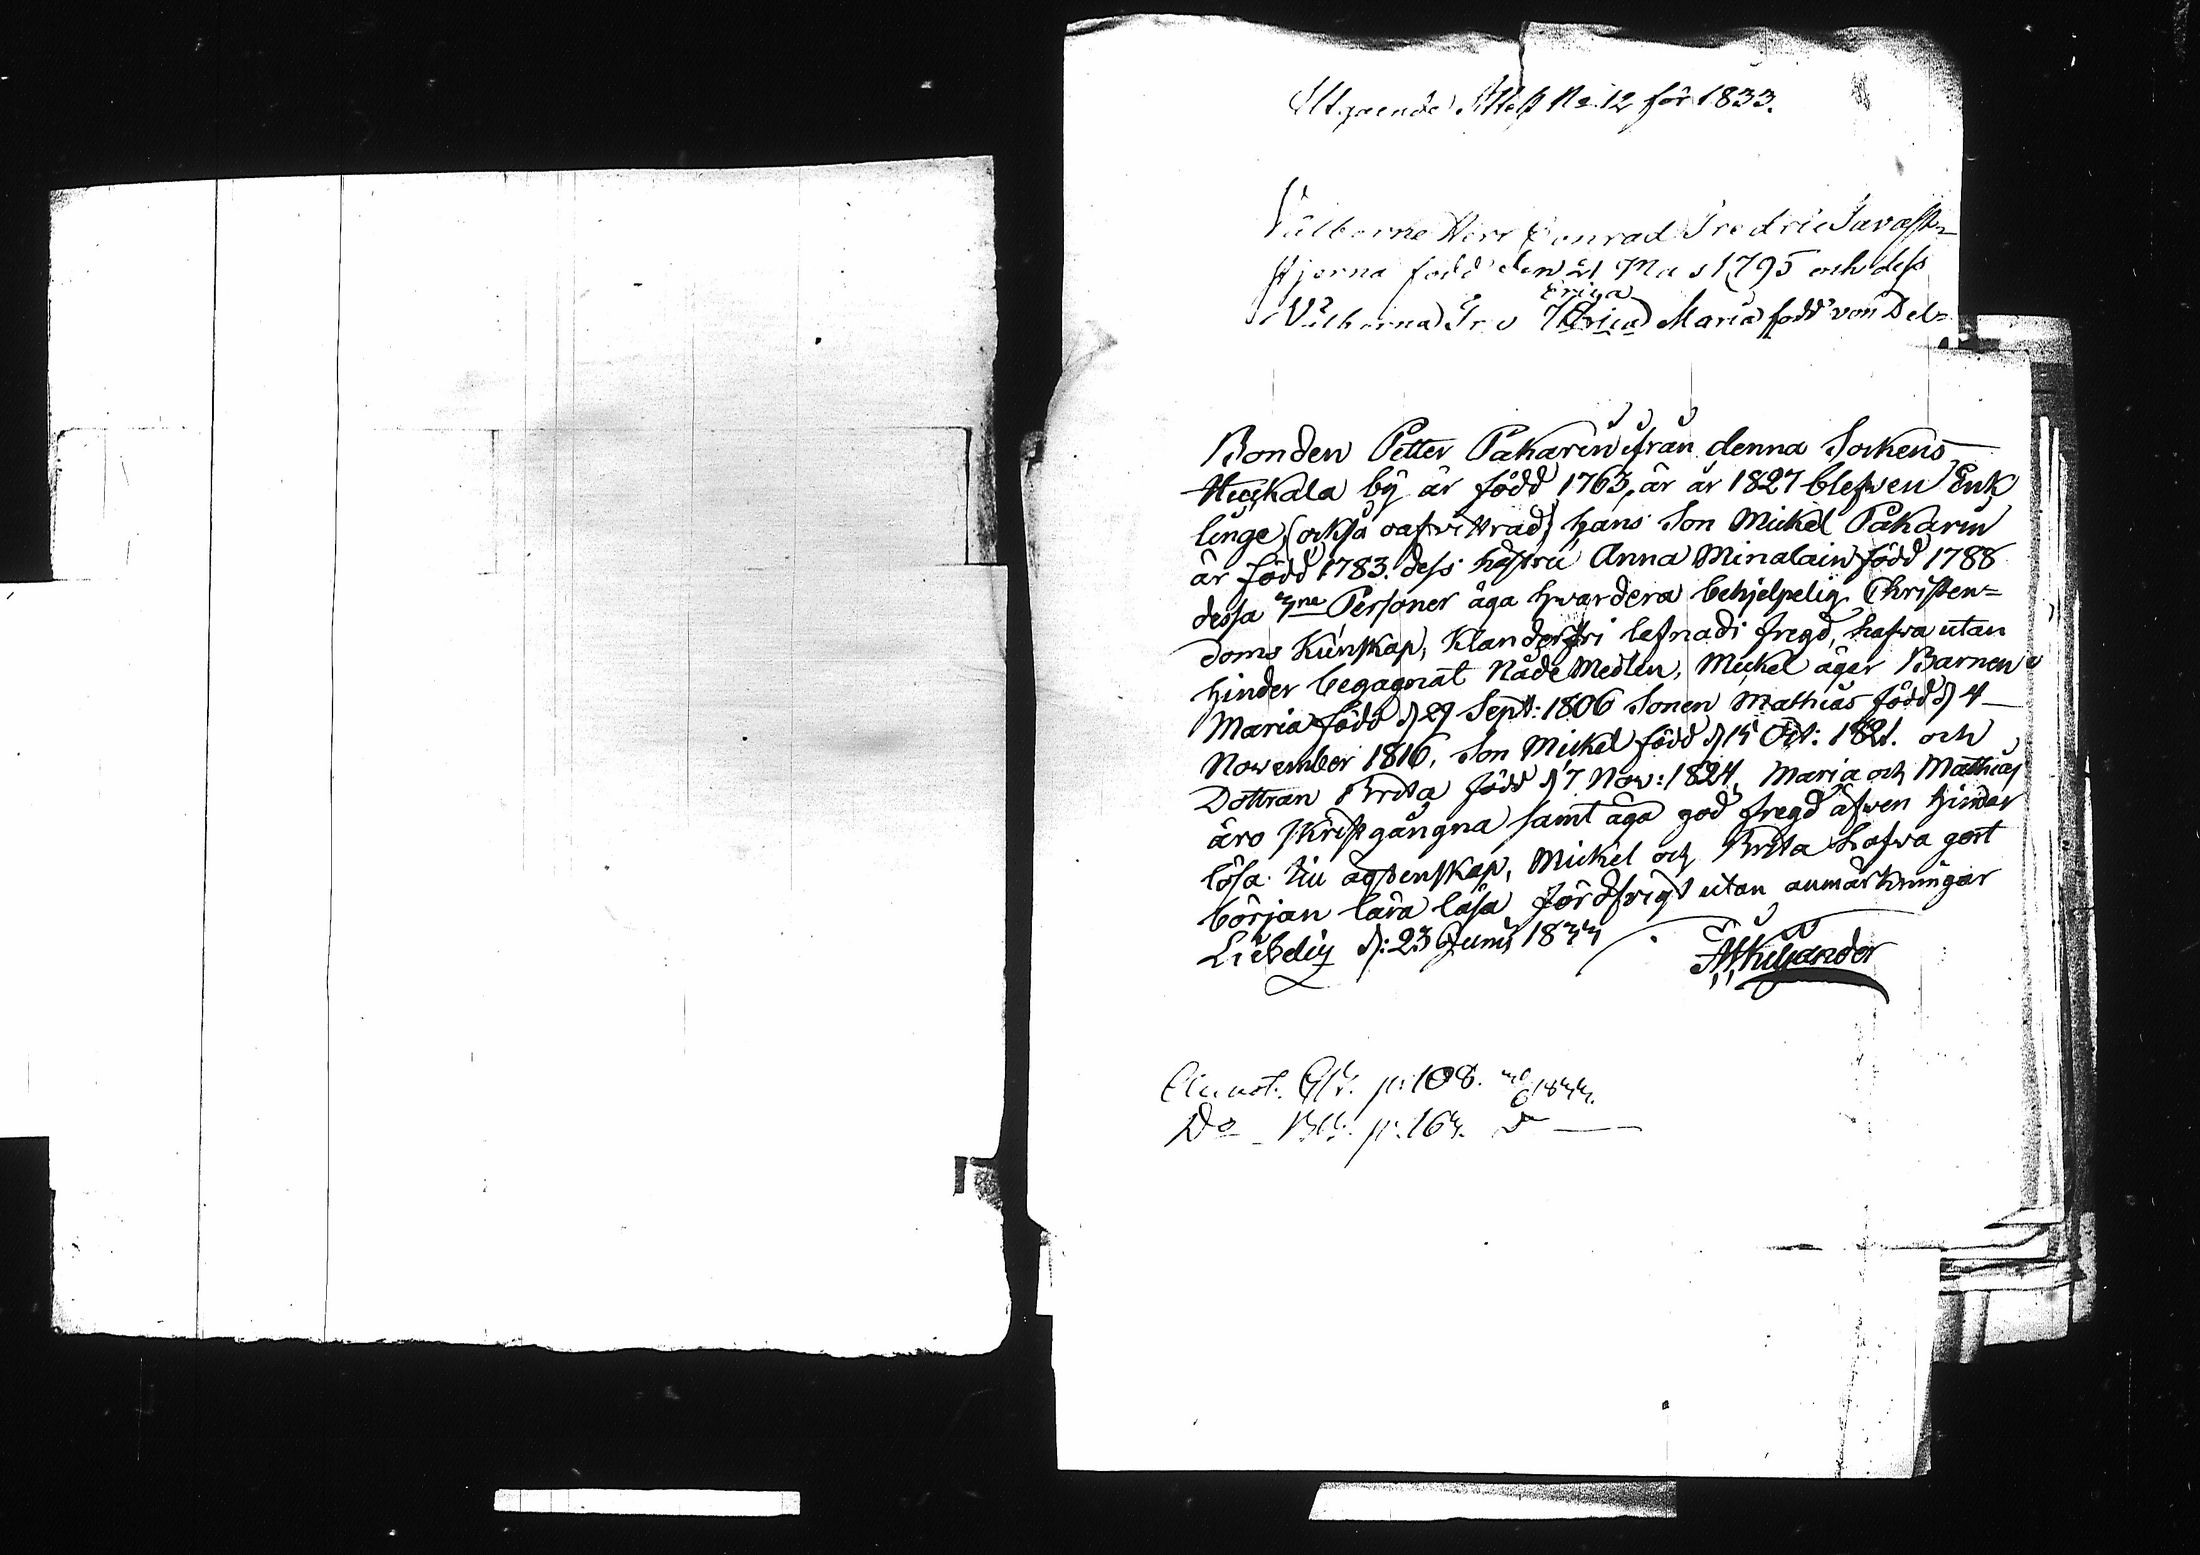 Utgående Attest No 12 för 1833.
Välborne Herr Conrad Fredric Tavast=
stjerna född den 21 Ma s 1795 och dess
Erica
Välborna Fr u Maria född von Del=
Bonden Petter Pakarin ifrån denna Sockens
by är född 1763, är år 1827 blefwen Enk
linge, (också oafvittrad) hans Son Mickel Pakarin
är född 1783. dess hustru Anna född 1788
dessa 3ne Personer äga hwardera behjelpelig Christen=
doms Kunskap, Klanderfri lefnad i fregd, hafwa utan
hinder begagnat Nåde Medlen, Mickel äger Barnen
Maria född d 29 Sept: 1806 Sonen Mathias född d 4
November 1816, Son Mickel född d 15 Oct: 1821. och
Dottran Brita född d 7 Nov: 1824, Maria och Mathias
äro skriftgångna samt äga god fregd äfwen hinder
lösa till ägtenskap, Mickel och Brita hafwa gort
början lära läsa för öfrigt utan anmärkningar
Liebelitz d: 23 Junii 1833
Kiljander
Annot. p: 108. 1833.
Do p: 163.